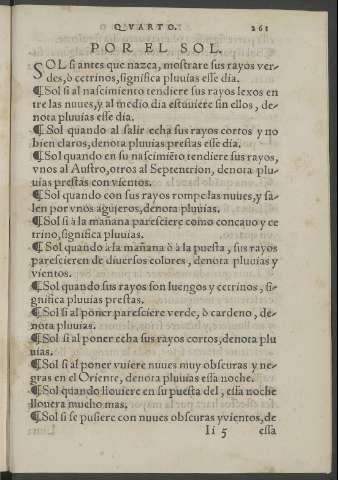 QVARTO. 261
POR EL SOL.
SOL si antes que nazca, mostrare sus rayos ver-
des, ò cetrinos, significa pluuias esse dia.
¶ Sol si al nascimiento tendiere sus rayos lexos en
tre las nuues, y al medio dia estuuiere sin ellos, de-
nota pluuias esse dia.
¶ Sol quando al salir echa sus rayos cortos y no
bien claros, denota pluuias prestas esse dia.
¶ Sol quando en su nasimiẽto tendiere sus rayos,
vnos al Austro, otros al Septentrion, denota plu-
uias prestas con vientos.
¶ Sol quando con sus rayos rompe las nuues, y sa-
len por vnos agujeros, denota pluuias.
¶ Sol si à la mañana paresciere como concauo y ce
trino, significa pluuias.
¶ Sol quando a la mañana ò à la puesta, sus rayos
parescieren de diuersos colores, denota pluuias y
vientos.
¶ Sol quando sus rayos son luengos y cetrinos, si-
gnifica pluuias prestas.
¶ Sol si al poner paresciere verde, ò cardeno, de-
nota pluuias.
¶ Sol si al poner echa sus rayos cortos, denota plu
uias.
¶ Sol si al poner vuiere nuues muy obscuras y ne-
gras en el Oriente, denota pluuias essa noche.
¶ Sol quando llouiere en su puesta del, essa noche
llouera mucho mas.
¶ Sol si se pusiere con nuues obscuras y vientos, de
Ii 5 essa